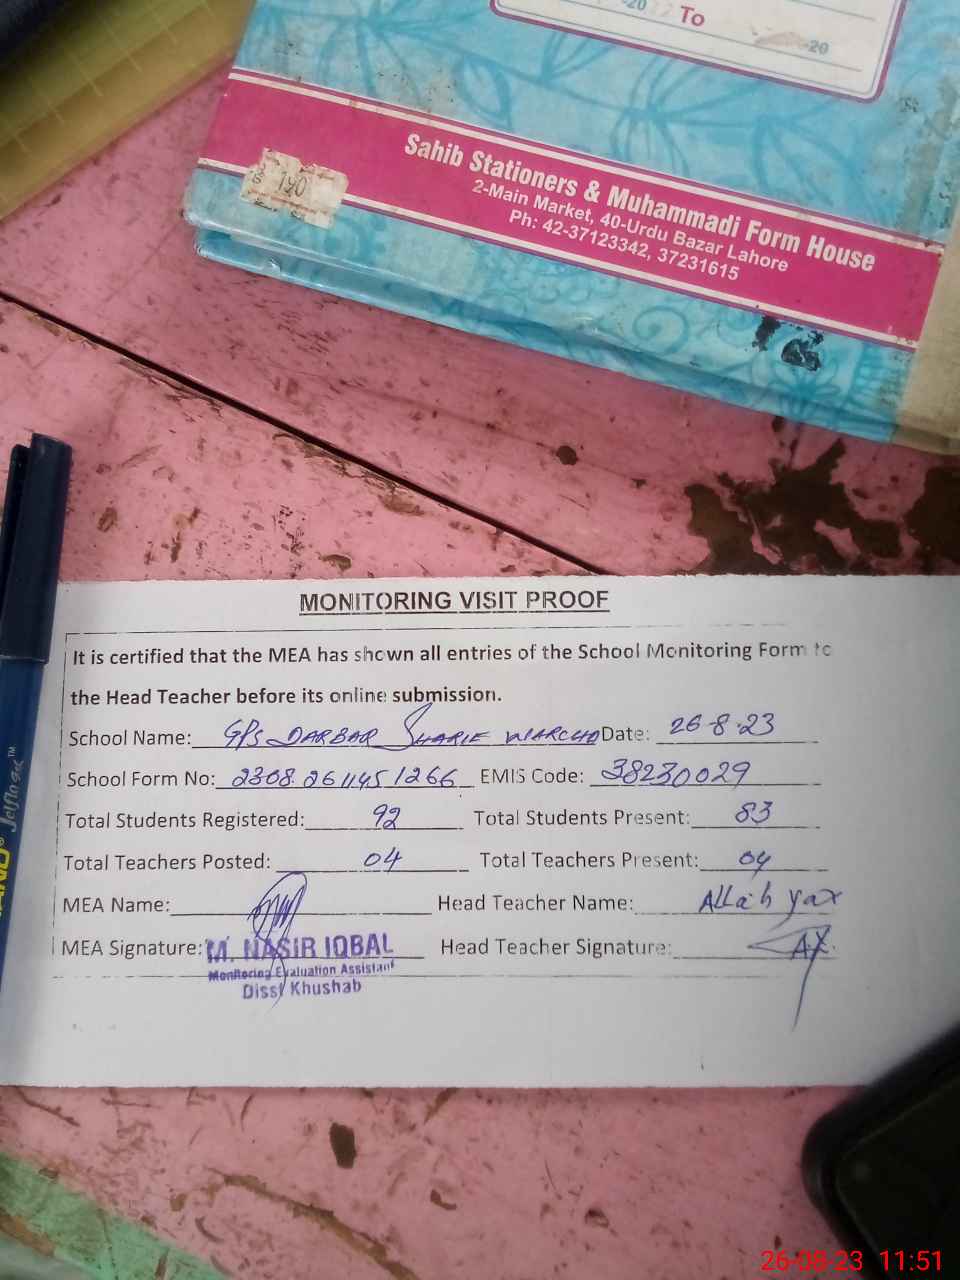 To
-20
190
Sahib Stationers & Muhammadi Form House
2-Main Market, 40-Urdu Bazar Lahore
Ph: 42-37123342, 37231615
Jelflo
MONITORING VISIT PROOF
It is certified that the MEA has shown all entries of the School Monitoring Form to
the Head Teacher before its online submission.
School Name: GPS DARBAR SHARIF WARCHA Date: 26-8-23
School Form No: 2308 261145 1266 EMIS Code: 38230029
Total Students Registered: 92 Total Students Present: 83
Total Teachers Posted: 04 Total Teachers Present: 04
MEA Name: Head Teacher Name: Allah yar
MEA Signature: M. NASIR IQBAL Head Teacher Signature: AY.
Monitoring Evaluation Assistant
Disst Khushab
26-08-23 11:51